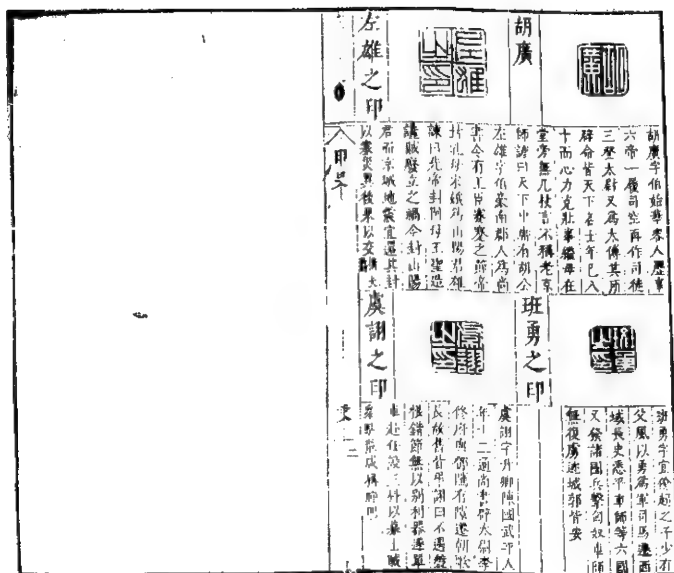 胡廣
胡廣字伯始華容人歷事
六帝一履司空再作司徒
三登太尉又爲太傅其所
辟命皆天下名士年已八
十而心力克壯事繼母在
堂旁無几杖言不稱老京
師諺曰天下中庸有胡公
左雄之印
左雄字伯豪南郡人爲尚
書令有王臣蹇蹇之節帝
封乳母宋娥爲山陽君雄
諫曰先帝封阿母王聖造
讒賊廢立之禍今封山陽
君而京城地震宜還其封
以塞災異後果以交
班勇之印
班勇字宜僚超之子少有
父風以勇爲軍司馬遷西
域長史悉平車師等六國
又發諸國兵擊匈奴車師
無復虜迹城郭皆安
虞詡之印
虞詡字升卿陳國武平人
年十二通尚書辟太尉李
修府與鄧隲有隙遷朝歌
長故舊皆弔詡曰不遇盤
根錯節無以別利器遂單
車赴任設三科以募士賊
衆駭散咸稱神明